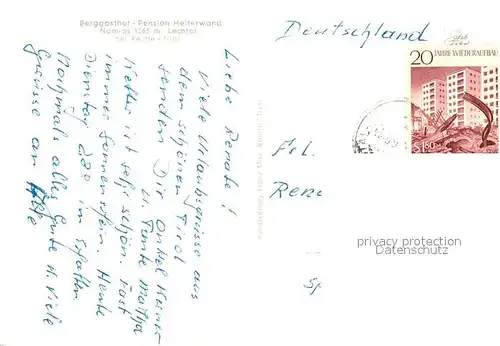 Berggasthof - Pension Heiterwand
Namlos 1263 m Lechtal
bei Reutte - Tirol
Liebe Renate!
Viele Urlaubsgrüsse aus
dem schönen Tirol
senden Dir Onkel
u. Tante Martha
Wetter ist sehr schön. Fast
immer Sonnenschein. Heute
Dienstag 28° im Schatten
Nochmals alles Gute u. viele
Grüsse an
Deutschland
20
JAHRE WIEDERAUFBAU
S 1.80
Frl.
Rena
privacy protection
Datenschutz
Sp